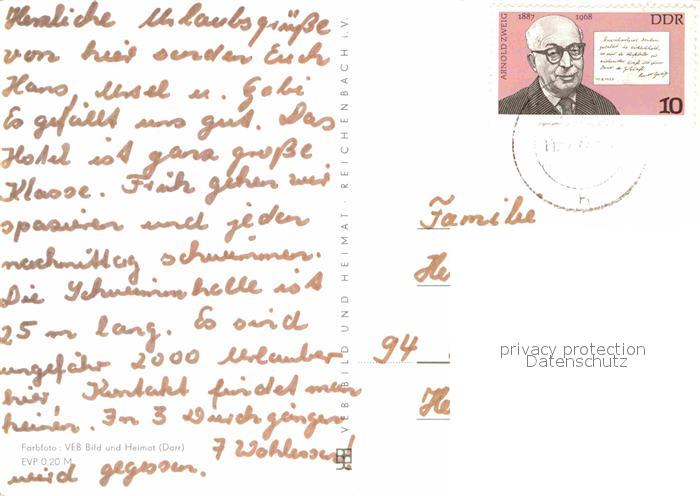 Herzliche Urlaubsgrüße
von hier senden Euch
Hans, Ursel u. Gabi
Es gefällt uns gut. Das
Hotel ist ganz große
Klasse. Früh gehen wir
spazieren und jeden
nachmittag schwimmen.
Die Schwimmhalle ist
25 m lang. Es sind
ungefähr 2000 Urlauber
hier Kontakt findet man
keinen. In 3 Durchgängen
wird gegessen.
Farbfoto: VEB Bild und Heimat (Darr)
EVP 0,20 M
VEB BILD UND HEIMAT · REICHENBACH i. V.
ARNOLD ZWEIG
1887 1968
DDR
10
Familie
He
94
He
privacy protection
Datenschutz